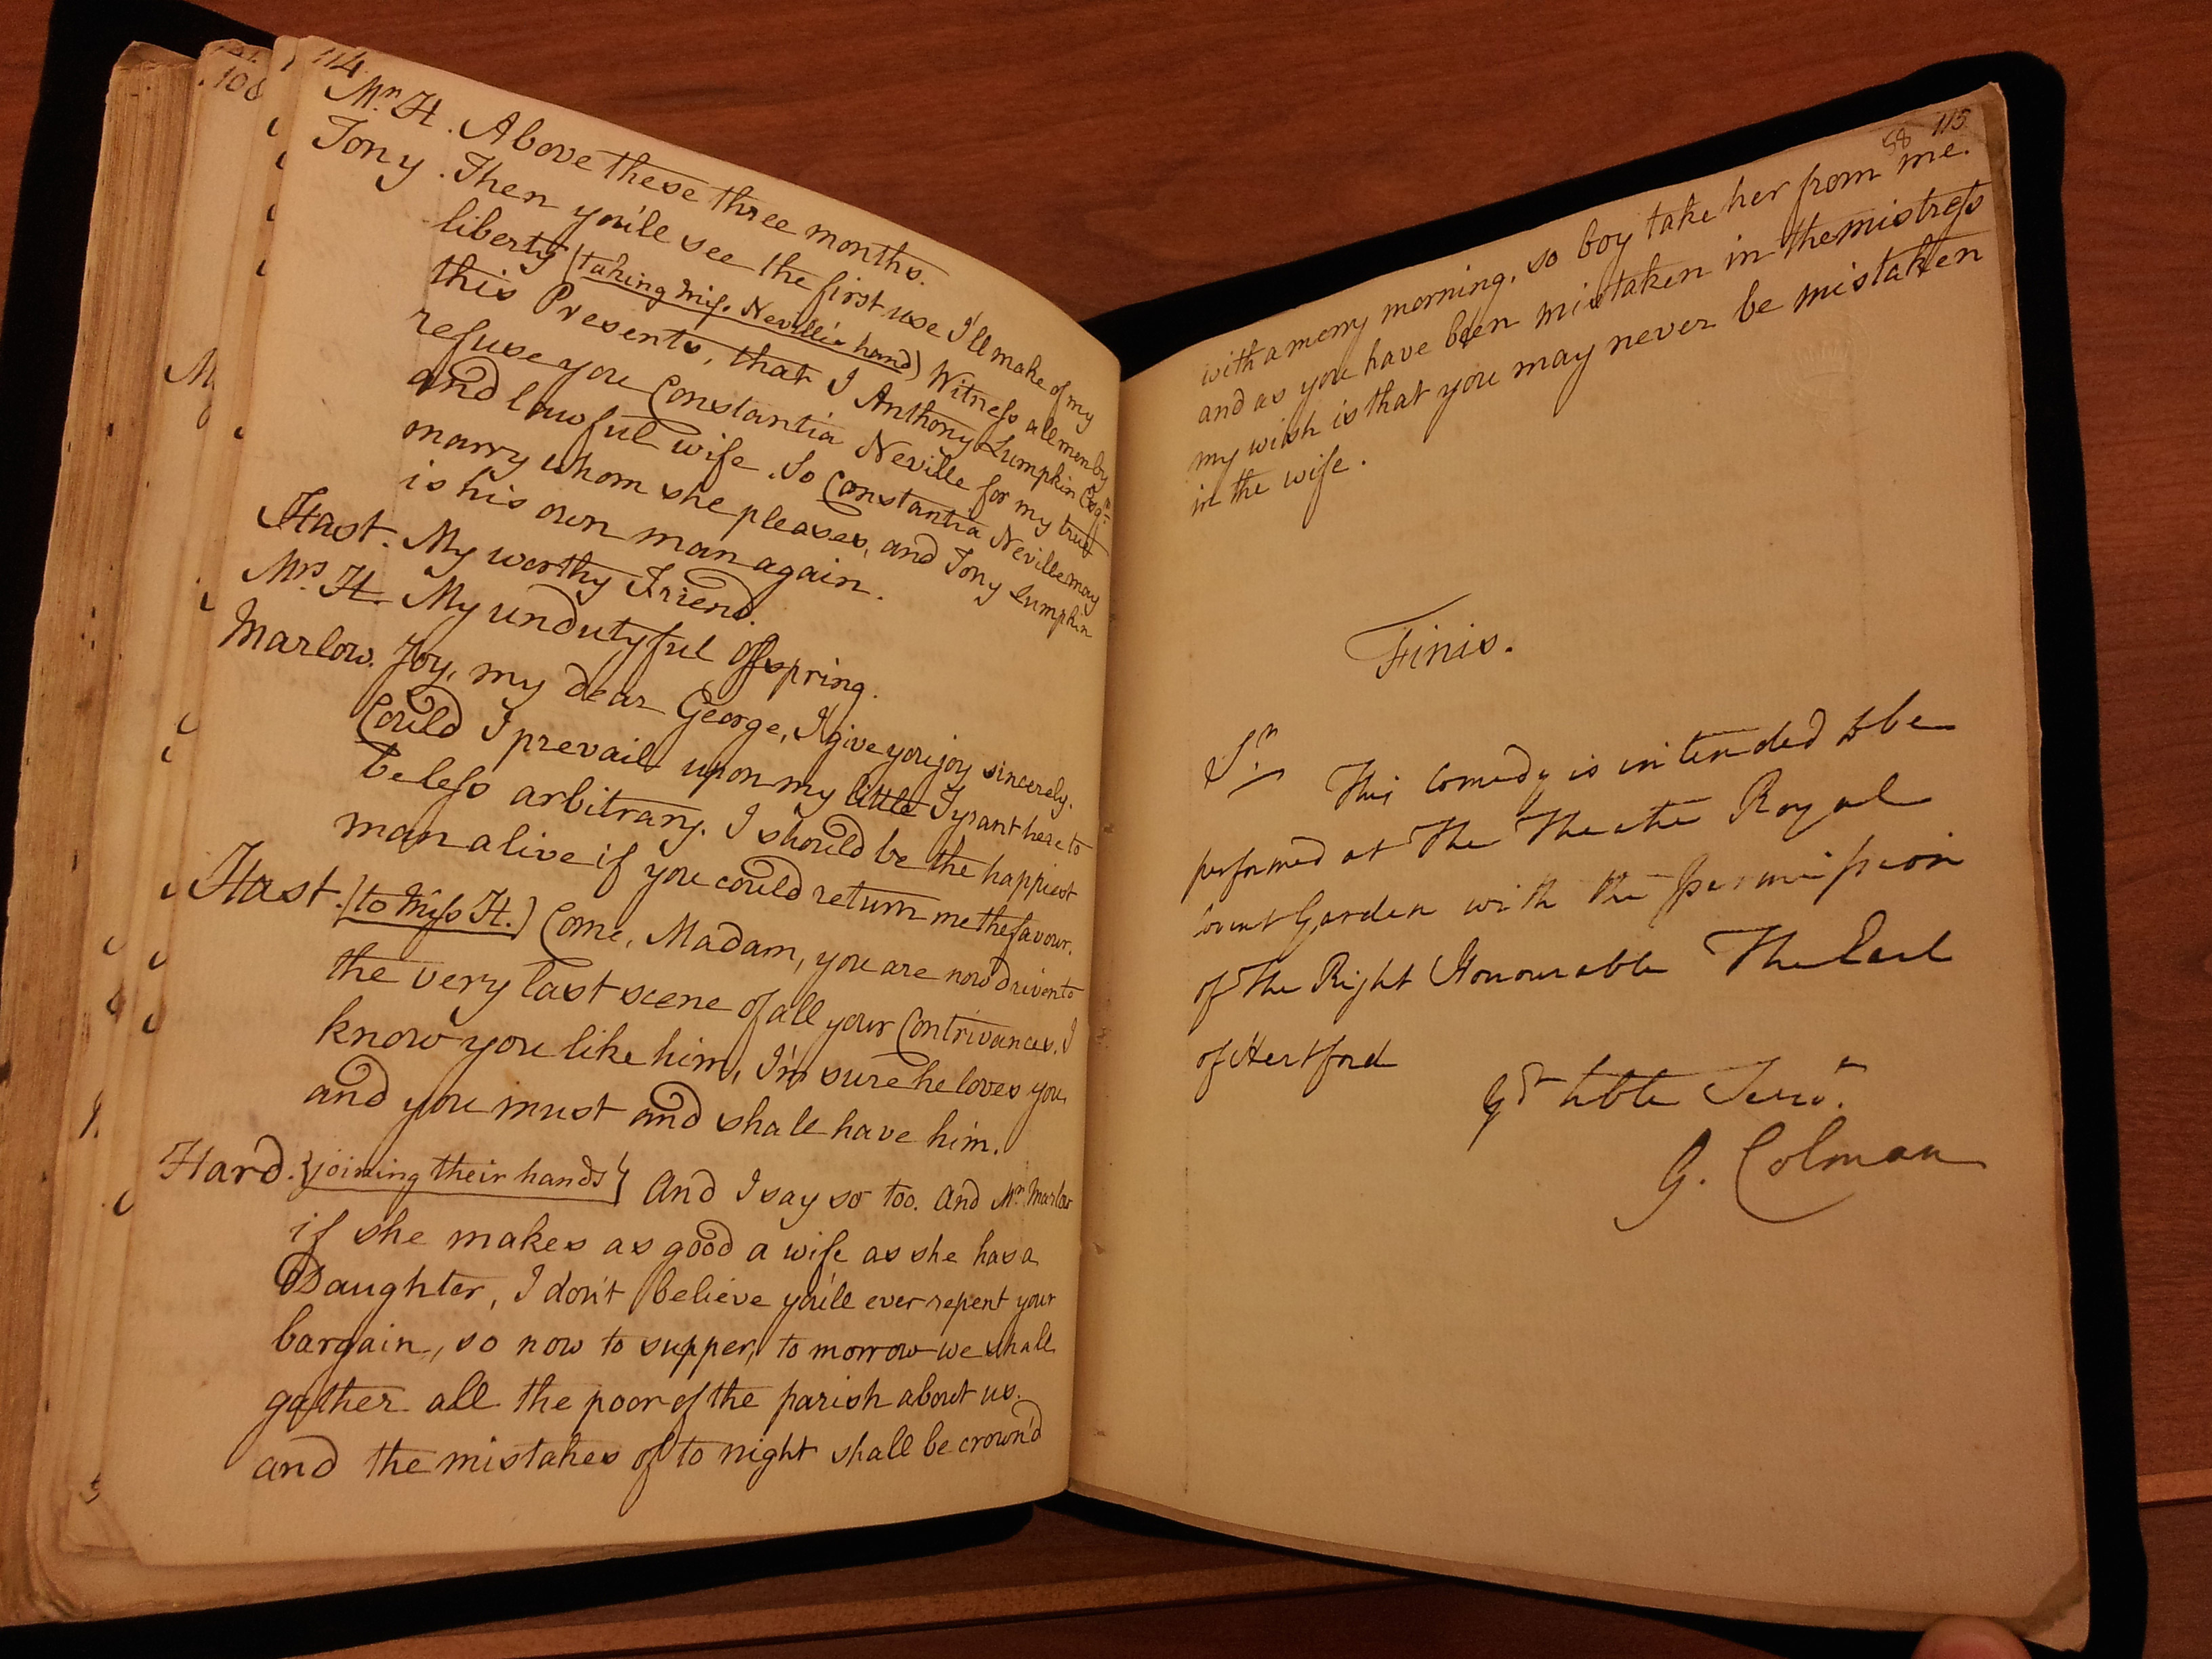 108
114
Mr. H. Above these three months.
Tony. Then you'le see the first use I'll make of my
liberty (taking Miss. Nevill's hand) Witness all men by
this Presents, that I Anthony Lumpkin Esqr.
refuse you Constantia Neville for my true
and lawful wife. So Constantia Neville may
marry whom she pleases, and Tony Lumpkin
is his own man again.
Hast. My worthy Friend.
Mrs. H. My undutyful offspring.
Marlow. Joy, my dear George, I give you joy sincerely.
Could I prevail upon my little Tyrant here to
be less arbitrary. I should be the happiest
man alive if you could return me the favour.
Hast. (to Miss H.) Come, Madam, you are now driven to
the very last scene of all your Contrivances. I
know you like him, I'm sure he loves you,
and you must and shall have him.
Hard. (joining their hands) And I say so too. And Mr. Marlow
if she makes as good a wife as she has a
Daughter, I don't believe you'le ever repent your
bargain, so now to supper, to morrow we shall
gather all the poor of the parish about us.
and the mistakes of to night shall be crown'd
58 115
with a merry morning, so boy take her from me.
and as you have been mistaken in the mistress
my wish is that you may never be mistaken
in the wife.
Finis.
Sr.
This Comedy is intended to be
performed at The Theatre Royal
Covent Garden with the permission
of The Right Honourable The Earl
of Hertford
Yr hble Servt.
G. Colman